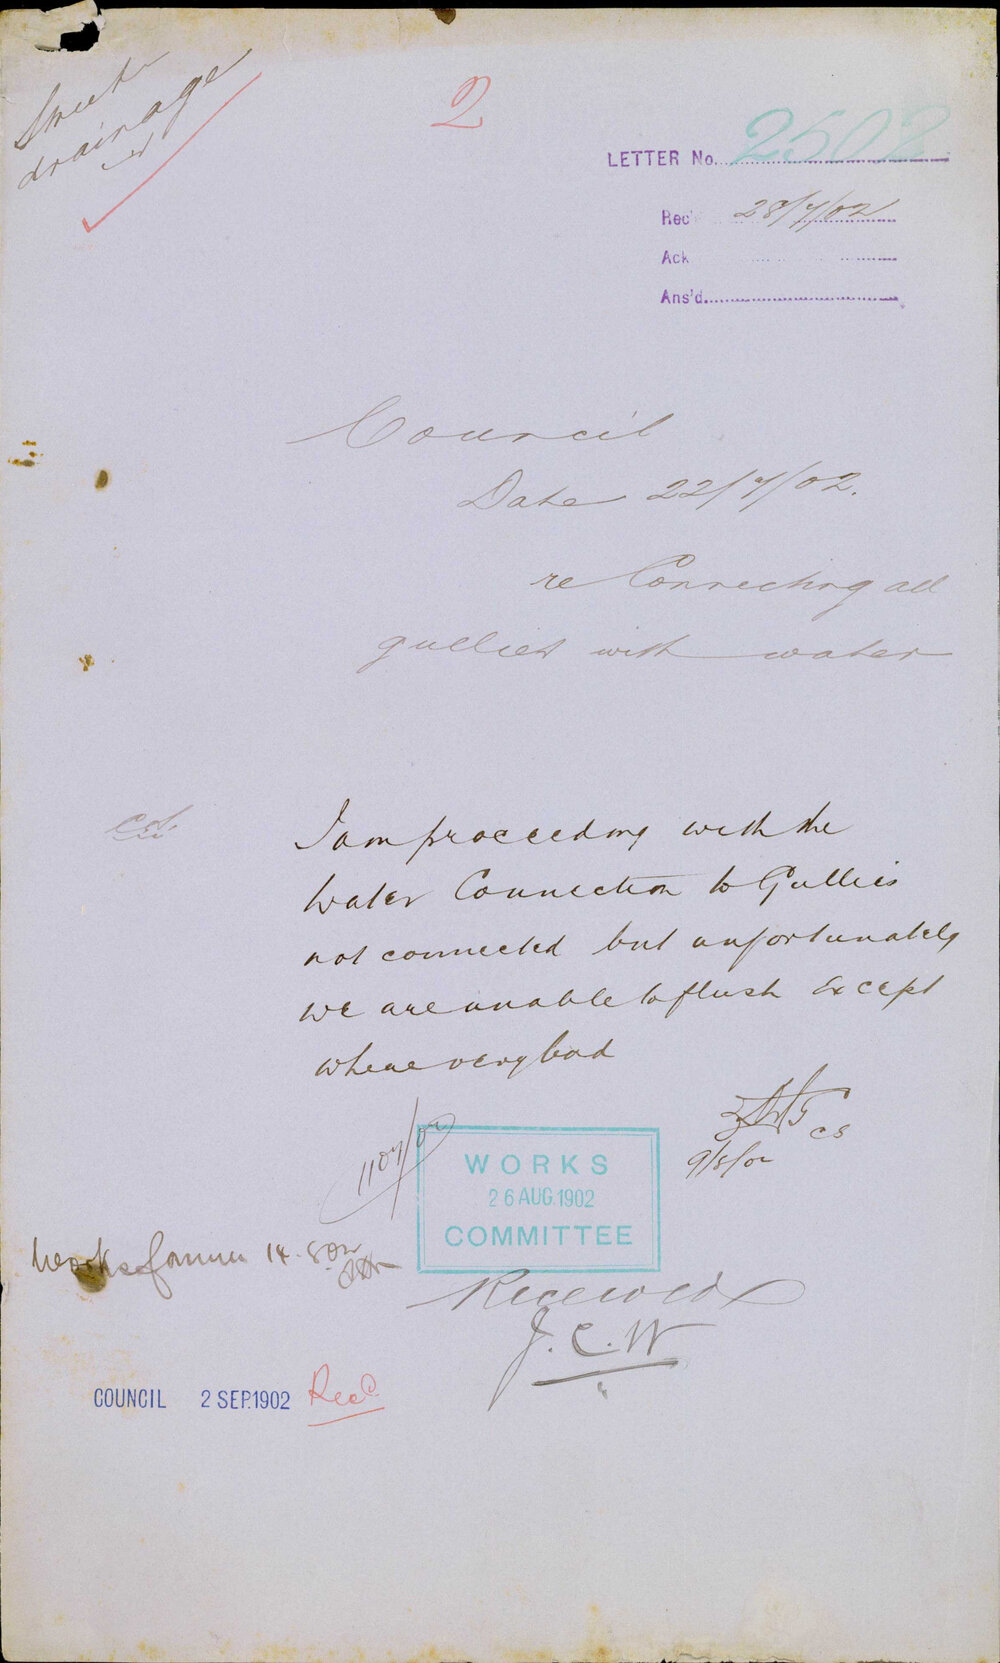 Street
drainage
2
LETTER No. 2502
Rec'd 28/7/02
Ack
Ans'd
Council
Date 22/7/02.
re Connecting all
gullies with water
C.S.
I am proceeding with the
water Connection to Gullies
not connected but unfortunately
we are unable to flush Except
where very bad
CS
9/8/02
WORKS
26 AUG. 1902
COMMITTEE
Works 14.8.02
Received
J. C. W
COUNCIL 2 SEP. 1902 Recd.